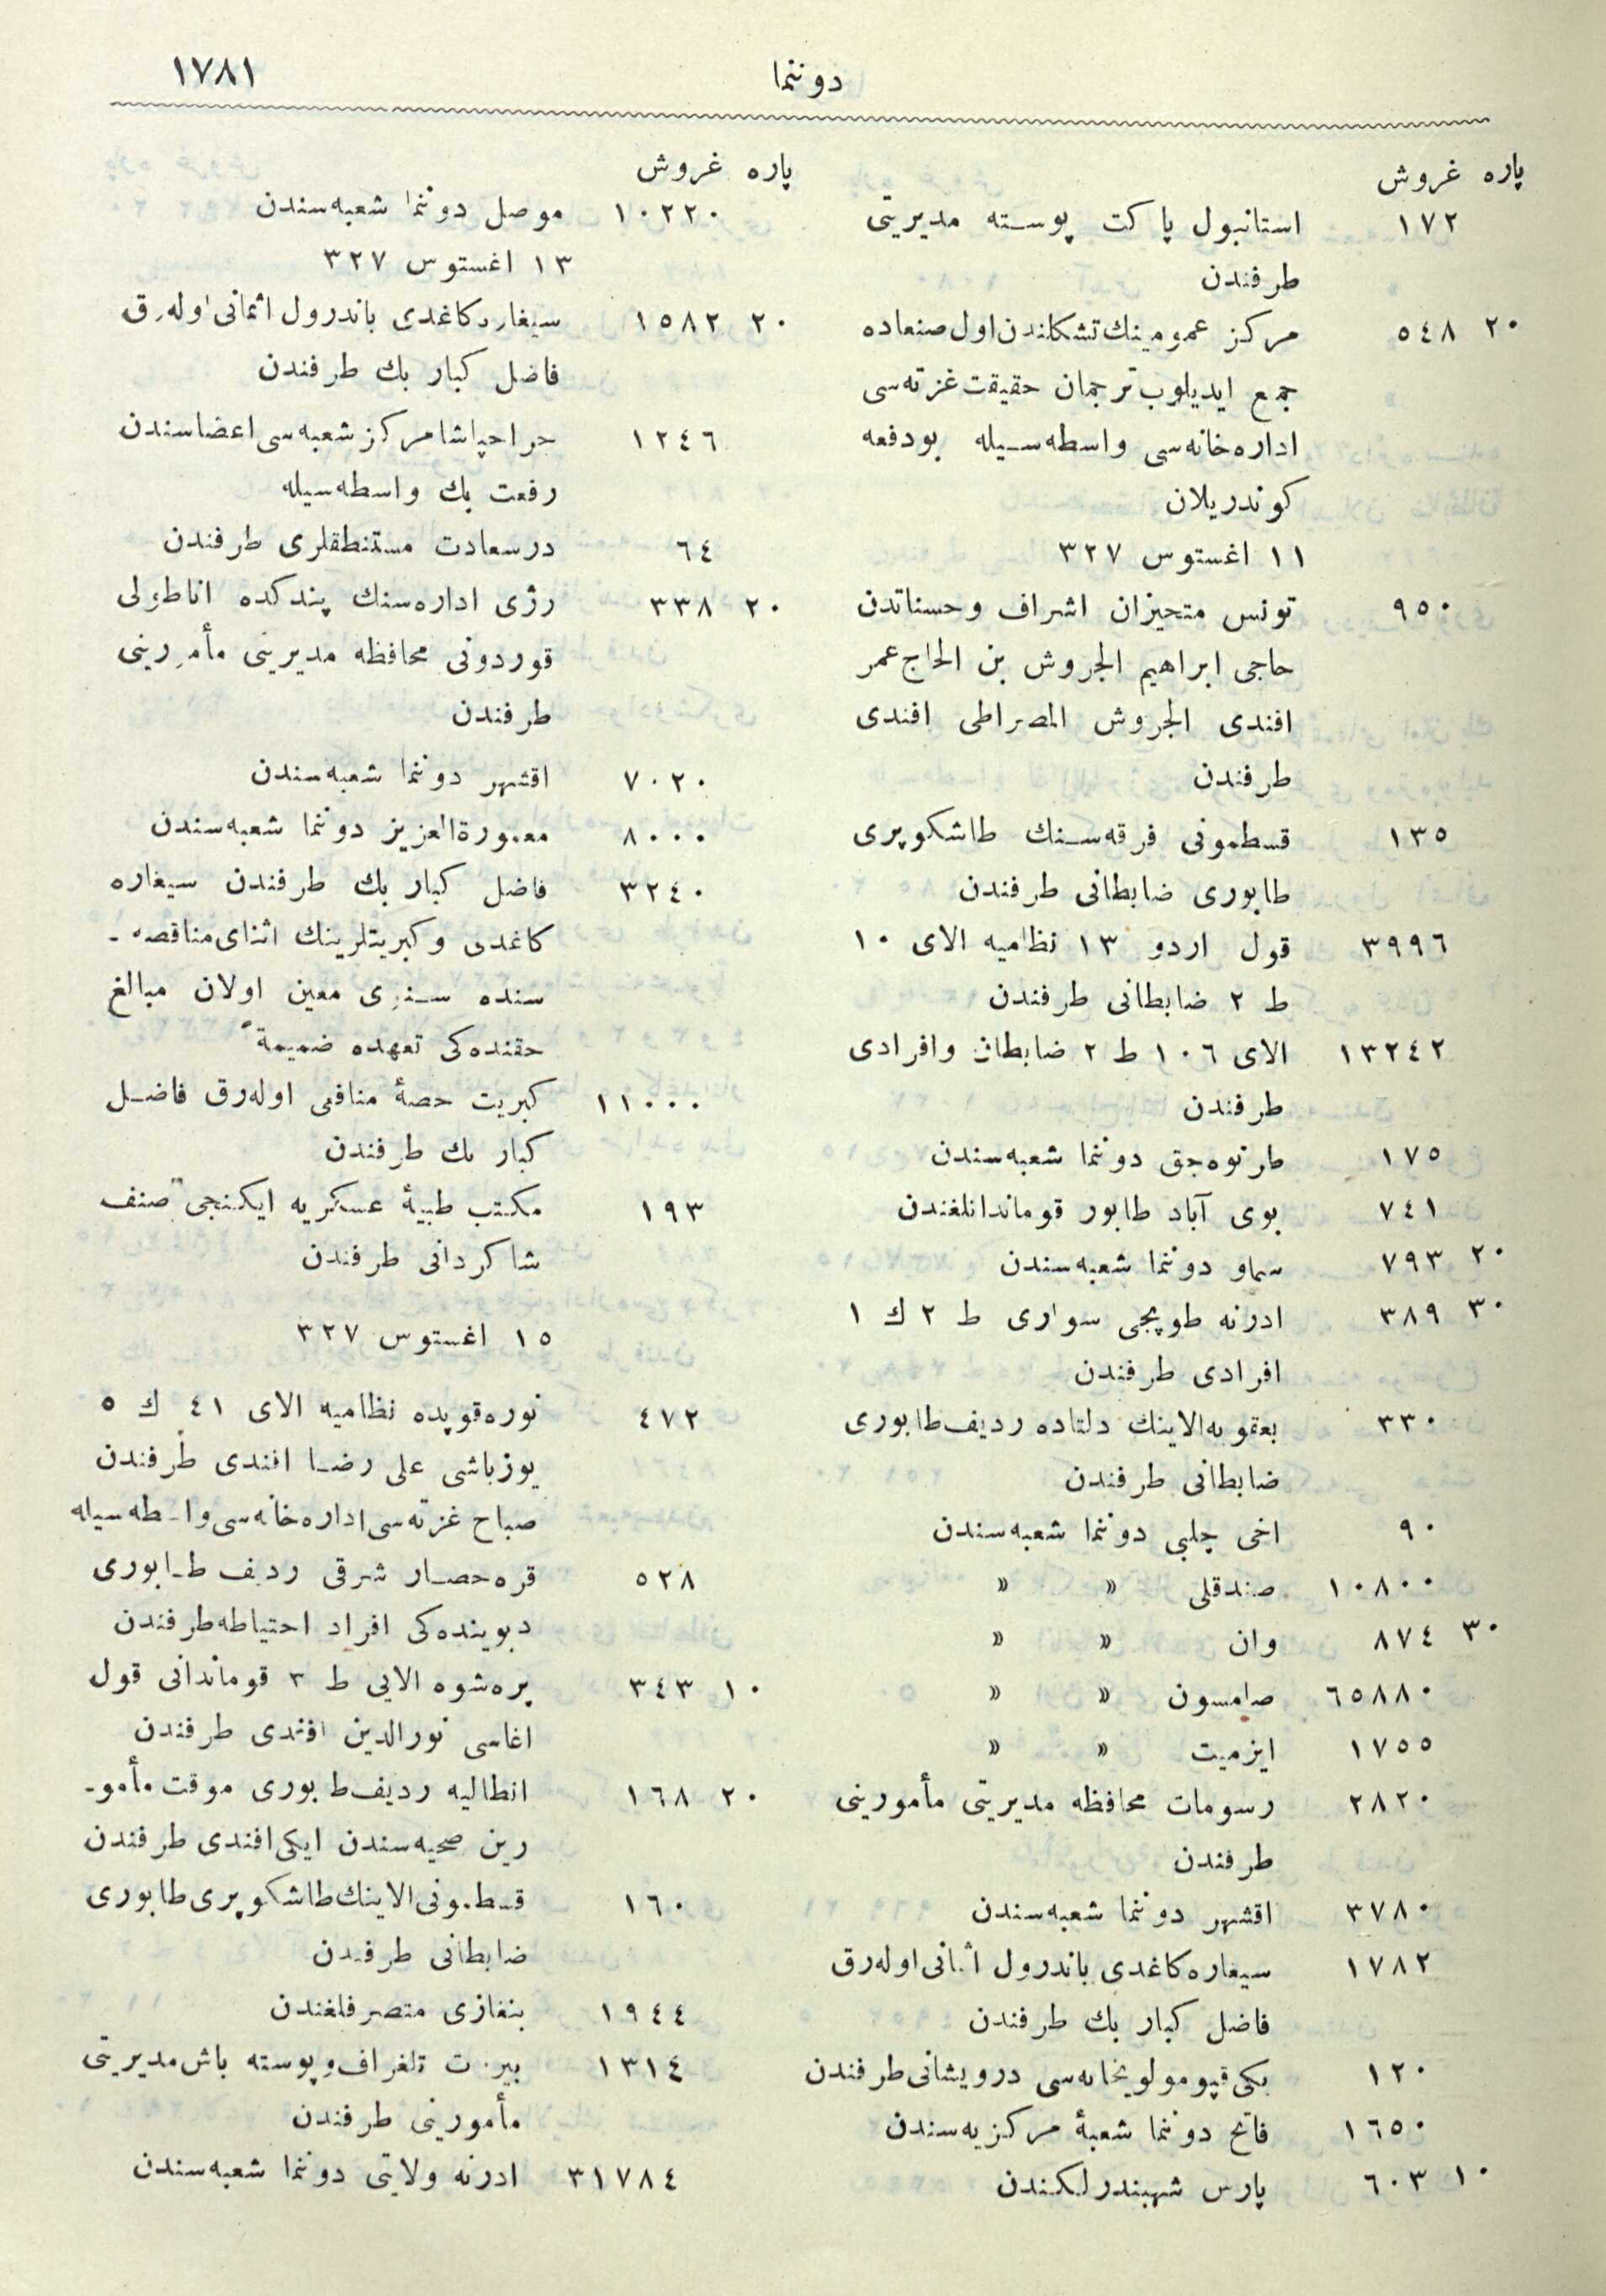 دوننما ١٧٨١
پاره غروش
١٧٢ استانبول پاكت پوسته مديريتى
طرفندن
٢٠ ٥٤٨ مركز عمومينك تشكلندن اول صنعاده
جمع ايديلوب ترجمان حقيقت غزته‌سى
اداره‌خانه‌سى واسطه‌سيله بودفعه
كوندريلان
١١ اغستوس ٣٢٧
٩٥٠ تونس متحيزان اشراف وحسناتدن
حاجى ابراهيم الجروش بن الحاج عمر
افندى الجروش المصراطى افندى
طرفندن
١٣٥ قسطمونى فرقه‌سنك طاشكوپرى
طابورى ضابطانى طرفندن
٣٩٩٦ قول اردو ١٣ نظاميه الاى ١٠
ط ٢ ضابطانى طرفندن
١٣٢٤٢ الاى ١٠٦ ط ٢ ضابطان وافرادى
طرفندن
١٧٥ طرنوه‌جق دوننما شعبه‌سندن
٧٤١ بوى آباد طابور قوماندانلغندن
٢٠ ٧٩٣ سماو دوننما شعبه‌سندن
٣٠ ٣٨٩ ادرنه طوپجى سوارى ط ٢ ك ١
افرادى طرفندن
٣٣٠ بعقوبه الاينك دلتاده رديف طابورى
ضابطانى طرفندن
٩٠ اخى چلبى دوننما شعبه‌سندن
١٠٨٠٠ صندقلى » »
٣٠ ٨٧٤ وان » »
٦٥٨٨٠ صامسون » »
١٧٥٥ ايزميت » »
٢٨٢٠ رسومات محافظه مديريتى مأمورينى
طرفندن
٣٧٨٠ اقشهر دوننما شعبه‌سندن
١٧٨٢ سيغاره كاغدى باندرول اثمانى اوله‌رق
فاضل كبار بك طرفندن
١٢٠ يكى قپو مولويخانه‌سى درويشانى طرفندن
١٦٥٠ فاتح دوننما شعبهٔ مركزيه‌سندن
١٠ ٦٠٣ پارس شهبندرلكندن
پاره غروش
١٠٢٢٠ موصل دوننما شعبه‌سندن
١٣ اغستوس ٣٢٧
٢٠ ١٥٨٢ سيغاره كاغدى باندرول اثمانى اوله‌رق
فاضل كبار بك طرفندن
١٢٤٦ جراحپاشا مركز شعبه‌سى اعضاسندن
رفعت بك واسطه‌سيله
٦٤ درسعادت مستنطقلرى طرفندن
٢٠ ٣٣٨ رژى اداره‌سنك پندكده اناطولى
قوردونى محافظه مديريتى مأمورينى
طرفندن
٧٠٢٠ اقشهر دوننما شعبه‌سندن
٨٠٠٠ معمورةالعزيز دوننما شعبه‌سندن
٣٢٤٠ فاضل كبار بك طرفندن سيغاره
كاغدى وكبريتلرينك اثناى مناقصه‌ـ
سنده سنوى معين اولان مبالغ
حقنده‌كى تعهده ضميمةً
١١٠٠٠ كبريت حصهٔ منافعى اوله‌رق فاضل
كبار بك طرفندن
١٩٣ مكتب طبيهٔ عسكريه ايكنجى صنف
شاكردانى طرفندن
١٥ اغستوس ٣٢٧
٤٧٢ نوره‌قوپده نظاميه الاى ٤١ ك ٥
يوزباشى على رضا افندى طرفندن
صباح غزته‌سى اداره‌خانه‌سى واسطه‌سيله
٥٢٨ قره‌حصار شرقى رديف طابورى
دبوينده‌كى افراد احتياطه طرفندن
١٠ ٣٤٣ پره‌شوه الايى ط ٣ قوماندانى قول
اغاسى نورالدين افندى طرفندن
٢٠ ١٦٨ انطاليه رديف طابورى موقت مأمو-
رين صحيه‌سندن ايكى افندى طرفندن
١٦٠ قسطمونى الاينك طاشكوپرى طابورى
ضابطانى طرفندن
١٩٤٤ بنغازى متصرفلغندن
١٣١٤ بيروت تلغراف وپوسته باش مديريتى
مأمورينى طرفندن
٣١٧٨٤ ادرنه ولايتى دوننما شعبه‌سندن